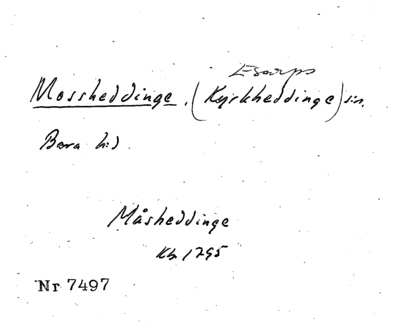 Esarps
Mossheddinge. (Kyrkheddinge) sn.
Bara hd.
Måsheddinge
Kb 1795
Nr 7497